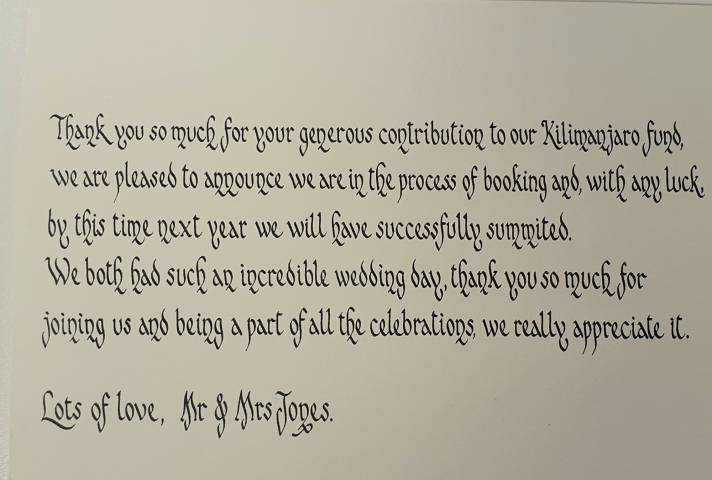 Thank you so much for your generous contribution to our Kilimanjaro fund,
we are pleased to announce we are in the process of booking and, with any luck,
by this time next year we will have successfully summited.
We both had such an incredible wedding day, thank you so much for
joining us and being a part of all the celebrations, we really appreciate it.
Lots of love, Mr & Mrs Jones.